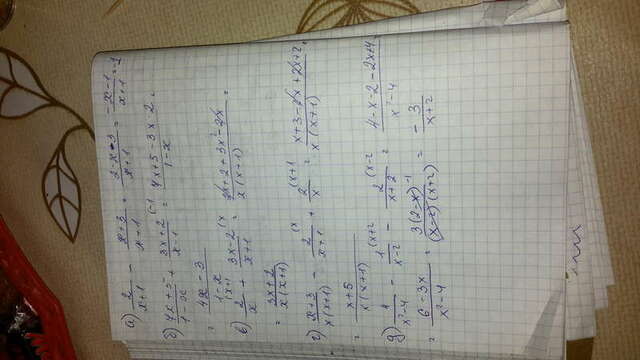 а) 2/(x+1) - (x+3)/(x+1) = (2-x-3)/(x+1) = (-x-1)/(x+1) = -1
б) (4x+5)/(1-x) + (3x+2)/(x-1) (-1 = (4x+5-3x-2)/(1-x) =
= (4x-3)/(1-x)
в) 2/x (x+1 + (3x-2)/(x+1) (x = (2x+2+3x²-2x)/(x(x+1)) =
= (3x+2)/(x(x+1))
г) (x+3)/(x(x+1)) - 2/(x+1) (x + 2/x (x+1 = (x+3-2x+2x+2)/(x(x+1)) =
= (x+5)/(x(x+1))
д) 4/(x²-4) - 1/(x-2) (x+2 - 2/(x+2) (x-2 = (4-x-2-2x+4)/(x²-4)
= (6-3x)/(x²-4) = 3(2-x)⁻¹/((x-2)(x+2)) = -3/(x+2)